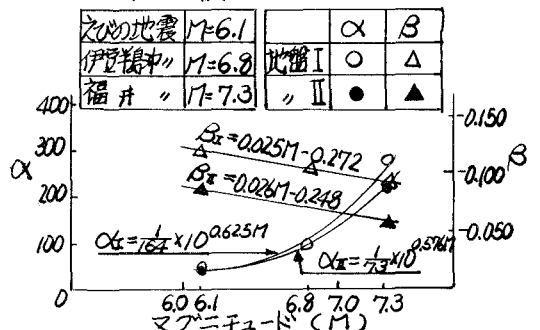 えびの地震 M=6.1
伊豆半島沖〃 M=6.8
福井 〃 M=7.3
α β
地盤I ○ △
〃 II ● ▲
400
300
200
100
0
α
0.150
0.100
0.050
β
βI=0.025M-0.272
βII=0.026M-0.248
αI=1/164×10^0.625M
αII=1/73×10^0.576M
6.0 6.1 6.8 7.0 7.3
マグニチュード(M)